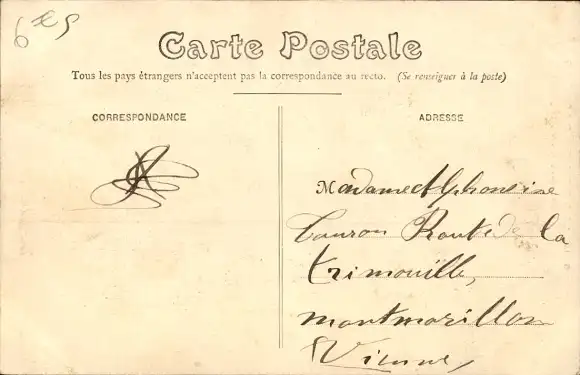 6 € 5
Carte Postale
Tous les pays étrangers n'acceptent pas la correspondance au recto. (Se renseigner à la poste)
CORRESPONDANCE
ADRESSE
Madame Alphonsine
Route de la
trimouille,
montmorillon
Vienne,